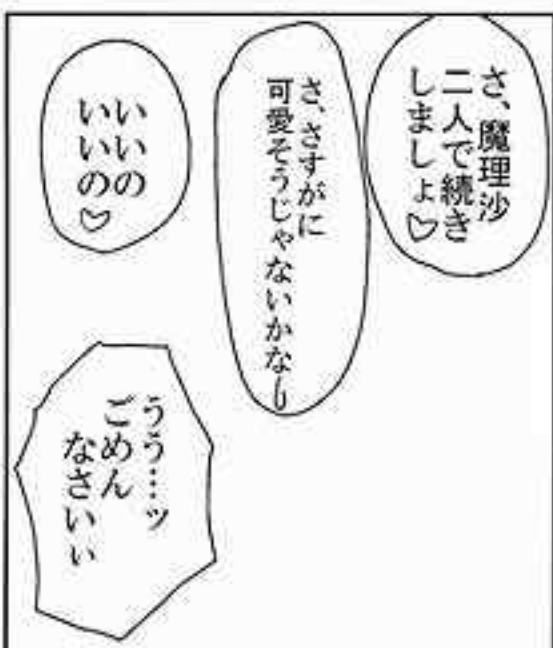 さ、魔理沙
二人で続き
しましょ♡
さ、さすがに
可愛そうじゃないかなー
いいの
いいの♡
うう…ッ
ごめん
なさいぃ